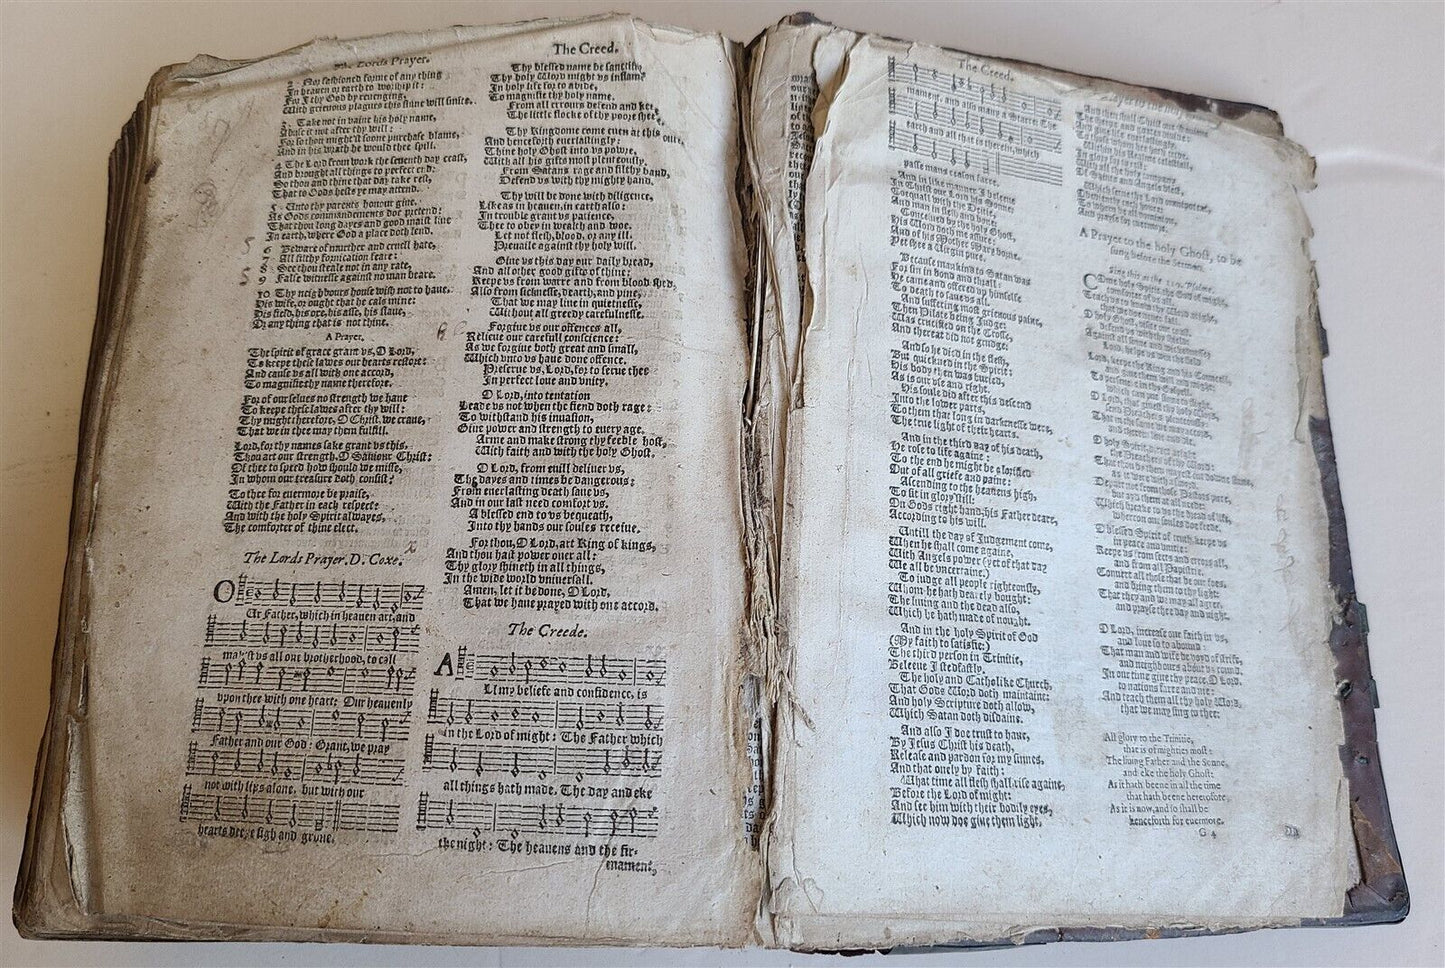 The Lords Prayer.
2 Nor fashioned forme of any thing
In heauen or earth to worship it:
For I thy God by reuenging,
With grieuous plagues this sinne will smite.
3 Take not in vaine his name,
Abuse it not after thy will:
For so thou might'st soone purchase blame,
And in his wrath he would thee spill.
4 The Lord from work the seuenth day ceast,
And brought all things to perfect end:
So thou and thine that day take rest,
That to Gods hests ye may attend.
5 Unto thy parents honour giue,
As Gods commandements doe pretend:
That thou long dayes and good maist liue
In earth, where God a place doth lend.
6 Beware of murther and cruell hate,
7 All filthy fornication feare:
8 See thou steale not in any rate,
9 False witnesse against no man beare.
10 Thy neighbours house wish not to haue,
His wife, or ought that he cals mine:
His field, his oxe, his asse, his slaue,
Or any thing that is not thine.
A Prayer.
The spirit of grace grant vs, O Lord,
To keepe these lawes our hearts restore:
And cause vs all with one accord,
To magnifie thy name therefore.
For of our selues no strength we haue
To keepe these lawes after thy will:
Thy might therefore, O Christ, we craue,
That we in thee may them fulfill.
Lord, for thy names sake grant vs this,
Thou art our strength, O Sauiour Christ:
Of thee to speed how should we misse,
In whom our treasure doth consist?
To thee for euermore be praise,
With the Father in each respect:
And with the holy Spirit alwayes,
The comforter of thine elect.
The Lords Prayer. D. Coxe.
OUr Father, which in heauen art, and
mak'st vs all one brotherhood, to call
vpon thee with one heart: Our heauenly
Father and our God: Grant, we pray
not with lips alone, but with our
hearts deepe sigh and grone.
The Creed.
Thy blessed name be sanctifi
Thy holy Word might vs inflame
In holy life for to abide,
To magnifie thy holy name.
From all errours defend and kee
The little flocke of thy poore shee
Thy Kingdome come euen at this
And henceforth euerlastingly:
Thine holy Ghost into vs powre,
With all his gifts most plenteously.
From Satans rage and filthy band,
Defend vs with thy mighty hand.
Thy will be done with diligence,
Like as in heauen, in earth also:
In trouble grant vs patience,
Thee to obey in wealth and woe.
Let not flesh, blood, or any ill,
Preuaile against thy holy will.
Giue vs this day our daily bread,
And all other good gifts of thine:
Keepe vs from warre and from blood shed,
Also from sicknesse, dearth, and pine,
That we may liue in quietnesse,
Without all greedy carefulnesse.
Forgiue vs our offences all,
Relieue our carefull conscience:
As we forgiue both great and small,
Which vnto vs haue done offence.
Preserue vs, Lord, for to serue thee
In perfect loue and vnity.
O Lord, into tentation
Leade vs not when the fiend doth rage:
To withstand his inuasion,
Giue power and strength to euery age.
Arme and make strong thy feeble host,
With faith and with the holy Ghost.
O Lord, from euill deliuer vs,
The dayes and times be dangerous:
From euerlasting death saue vs,
And in our last need comfort vs.
A blessed end to vs bequeath,
Into thy hands our soules receiue.
For thou, O Lord, art King of kings,
And thou hast power ouer all:
Thy glory shineth in all things,
In the wide world vniuersall.
Amen, let it be done, O Lord,
That we haue prayed with one accord.
The Creede.
ALl my beliefe and confidence, is
in the Lord of might: The Father which
all things hath made, The day and eke
the night: The heauens and the fir-
mament,
The Creed.
mament, and also many a Starre: The
earth and all that is therein, which
passe mans reason farre.
And in like manner I beleeue
In Christ our Lord his Sonne:
Coequall with the Deitie,
And man in flesh and bone.
Conceiued by the holy Ghost,
His Word doth me assure:
And of his Mother Mary borne
Yet shee a Uirgin pure.
Because mankind to Satan was
For sin in bond and thrall:
He came and offered vp himselfe
To death to saue vs all.
And suffering most grieuous paine,
Then Pilate being Iudge:
Was crucified on the Crosse,
And thereat did not grudge.
And so he died in the flesh,
But quickned in the Spirit:
His body then was buried,
As is our vse and right.
His soule did after this descend
Into the lower parts,
To them that long in darknesse were,
The true light of their hearts.
And in the third day of his death,
He rose to life againe:
To the end he might be glorified
Out of all griefe and paine:
Ascending to the heauens high,
To sit in glory still:
On Gods right hand, his Father deare,
According to his will.
Untill the day of Iudgement come,
When he shall come againe,
With Angels power (yet of that day
We all be vncertaine.)
To iudge all people righteously,
Whom he hath dearely bought:
The liuing and the dead also,
Which he hath made of nought.
And in the holy Spirit of God
(My faith to satisfie:)
The third person in Trinitie,
Beleeue I stedfastly.
The holy and Catholike Church,
That Gods Word doth maintaine:
And holy Scripture doth allow,
Which Satan doth disdaine.
And also I doe trust to haue,
By Iesus Christ his death,
Release and pardon for my sinnes,
And that onely by faith:
What time all flesh shall rise againe,
Before the Lord of might:
And see him with their bodily eyes,
Which now doe giue them light.
Prayer to the ho
A Prayer to the holy Ghost, to be
sung before the Sermon.
Sing this as the 119. Psalme.
COme holy Spirit the God of might,
Comforter of vs all,
Teach vs to know thy Word aright,
that we doe neuer fall.
O holy Ghost, visite our coast,
defend vs with thy shield:
Against all sinne and wickednesse,
Lord, helpe vs win the field.
Lord, keepe the King and his Councell,
O blessed Spirit of truth, keepe vs
in peace and vnitie:
Keepe vs from sects and errors all,
and from all Papistrie.
Conuert all those that be our foes,
and bring them to thy light:
That they and we may all agree,
and praise thee day and night.
O Lord, increase our faith in vs,
and loue so to abound:
That man and wife be voyd of strife,
and neighbours about vs round.
In our time giue thy peace, O Lord,
to nations farre and nie:
And teach them all thy holy Word,
that we may sing to thee:
All glory to the Trinitie,
that is of mighties most:
The liuing Father and the Sonne,
and eke the holy Ghost:
As it hath beene in all the time
that hath beene heretofore,
As it is now, and so shall be
henceforth for euermore.
G 4